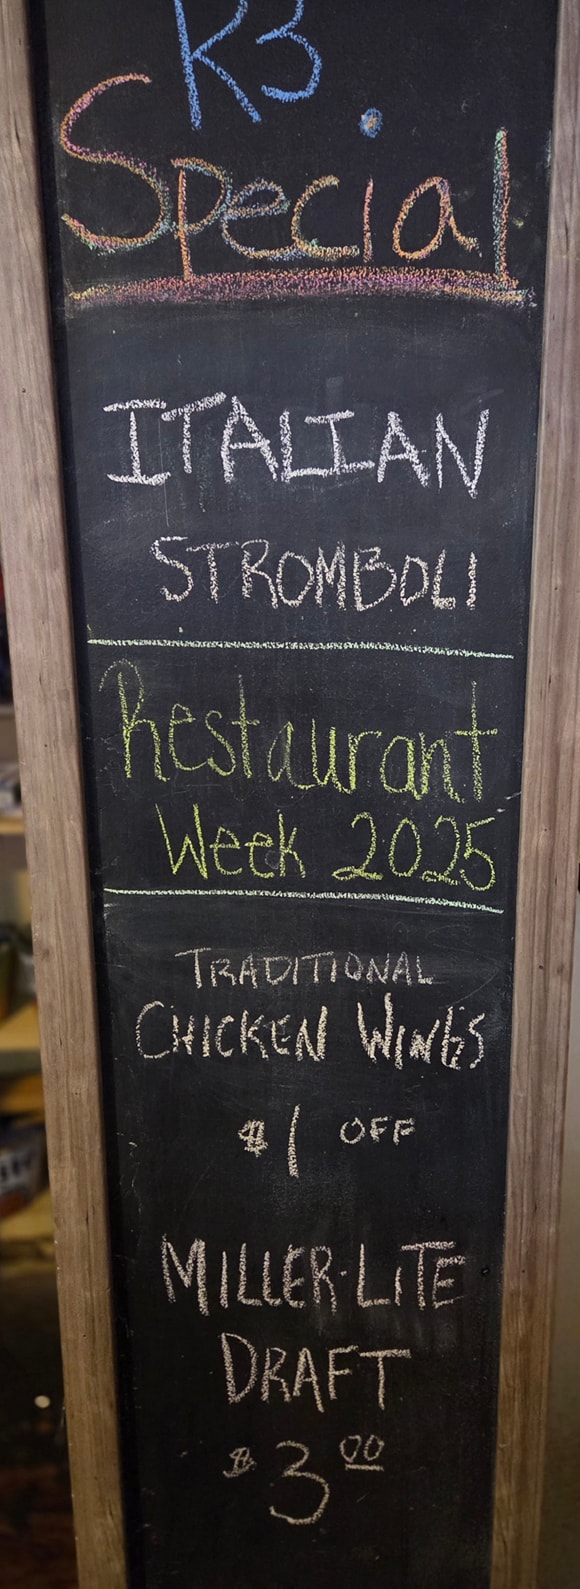 R3
Special
ITALIAN
STROMBOLI
Restaurant
Week 2025
TRADITIONAL
CHICKEN WINGS
$1 OFF
MILLER-LITE
DRAFT
$3.00